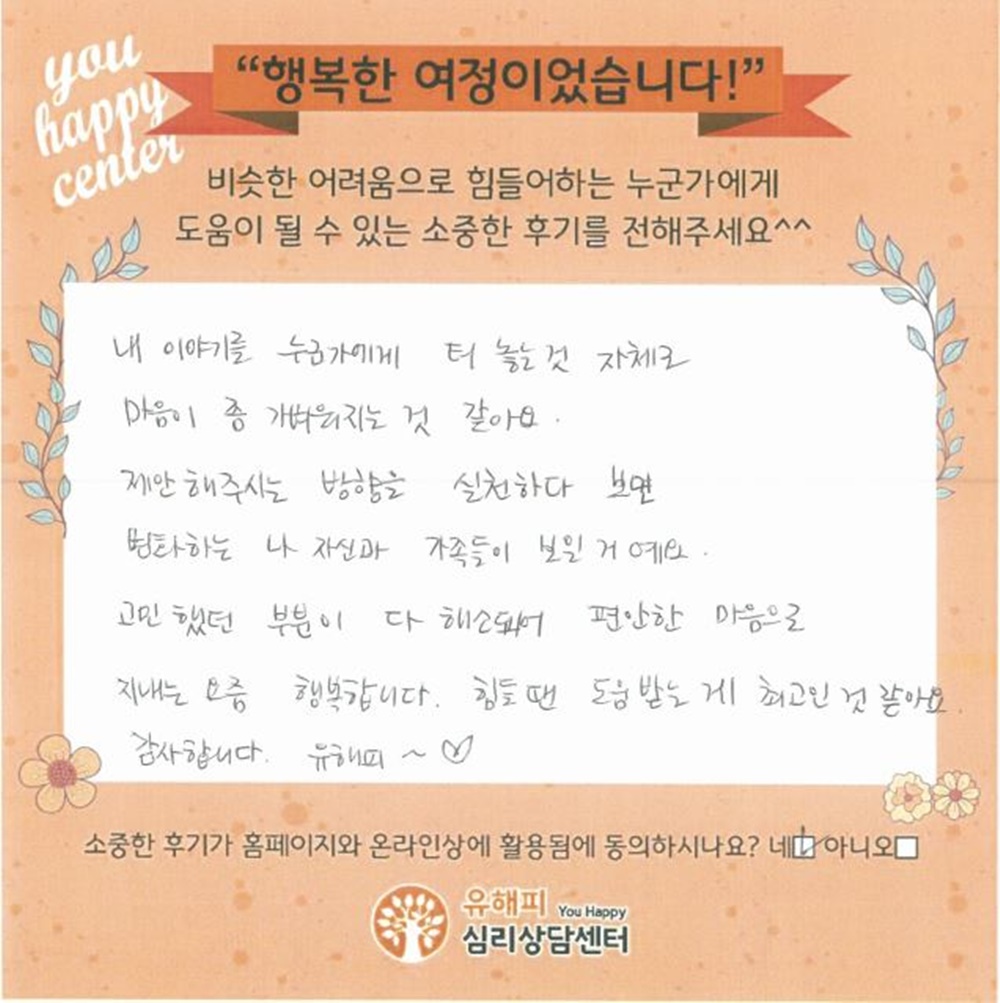 you
happy
center
“행복한 여정이었습니다!”
비슷한 어려움으로 힘들어하는 누군가에게
도움이 될 수 있는 소중한 후기를 전해주세요^^
내 이야기를 누군가에게 터 놓는것 자체로
마음이 좀 가벼워지는 것 같아요.
제안해주시는 방향을 실천하다 보면
변화하는 나 자신과 가족들이 보일 거예요.
고민했던 부분이 다 해소되어 편안한 마음으로
지내는 요즘 행복합니다. 힘들땐 도움받는게 최고인 것 같아요.
감사합니다. 유해피 ~ ♡
소중한 후기가 홈페이지와 온라인상에 활용됨에 동의하시나요? 네☑ 아니오☐
유해피 You Happy
심리상담센터